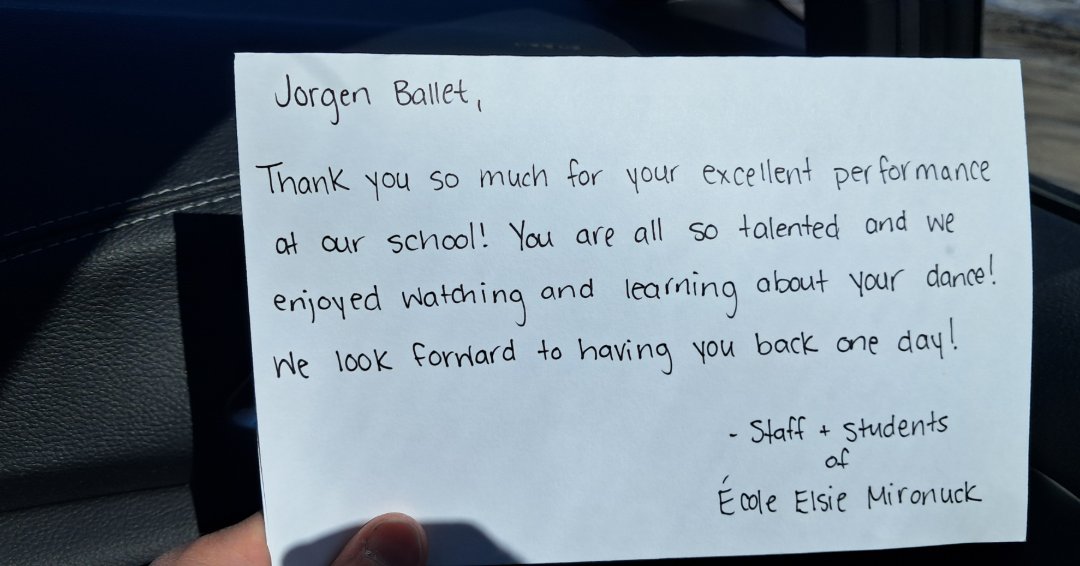 Jorgen Ballet,
Thank you so much for your excellent performance
at our school! You are all so talented and we
enjoyed watching and learning about your dance!
We look forward to having you back one day!
- Staff + Students
of
École Elsie Mironuck